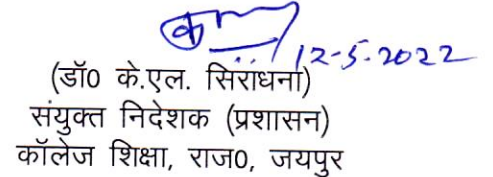 12-5-2022
(डॉ0 के.एल. सिराधना)
संयुक्त निदेशक (प्रशासन)
कॉलेज शिक्षा, राज0, जयपुर